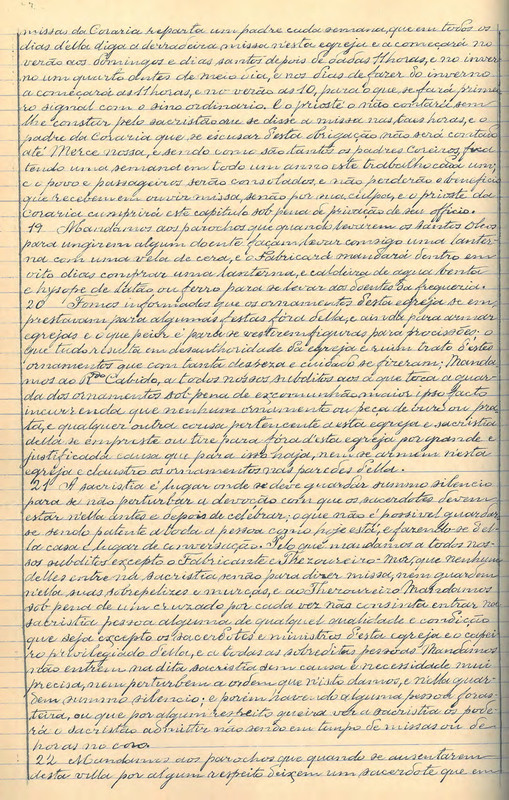 missas da Coraria reparta um padre cada semana, que em todos os
dias d'ella diga a derradeira missa nesta egreja e a começará no
verão aos domingos e dias santos depois de dadas 11 horas, e no inver
no um quarto antes de meio dia, e nos dias de fazer do inverno
a começará as 11 horas, e no verão as 10, para o que se fará primei
ro signal com o sino ordinario. E o prioste o não contará sem
lhe constar pelo sacristão que se disse a missa nas taes horas, e o
padre da Coraria que se escusar d'esta obrigação não será contado
até Merce nossa, e sendo como são tantos os padres Coreiros, fica
tendo uma semana em todo um anno este trabalho cada um,
e o povo e passageiros serão consolados, e não perderão o beneficio
que recebem em ouvir missa, senão por sua culpa, e o prioste da
Coraria cumprirá este capitulo sob pena de privação de seu officio.
19 Mandamos aos parochos que quando levarem os santos oleos
para ungirem algum doente façam levar comsigo uma lanter
na com uma vela de cera, e o Fabricario mandará dentro em
oito dias comprar uma lanterna, e caldeira de agua benta
e hysope de latão ou ferro para se levar aos doentes da freguezia.
20 Fomos informados que os ornamentos d'esta egreja se em
prestavam para algumas festas fóra della, e ainda para armar
egrejas e o que peior é para se vestirem figuras para procissões. o
que tudo resulta em desauthoridade da egreja e ruim trato d'estes
ornamentos que com tanta despeza e cuidado se fizeram; Manda
mos ao Rdo Cabido, a todos nossos subditos aos a que toca a guar
da dos ornamentos sob pena de excomunhão maior ipso facto
incurrenda que nenhum ornamento ou peça de ouro ou pra
ta, e qualquer outra cousa pertencente a esta egreja e sacristia
della se empreste ou tire para fóra d'esta egreja por grande e
justificada causa que para isso haja, nem se armem nesta
egreja e claustro os ornamentos nas paredes d'ella.
21 A sacristia é lugar onde se deve guardar summo silencio
para se não perturbar a devoção com que os sacerdotes devem
estar n'ella antes e depois de célébrar; o que não é possivel guardar
se sendo patente a toda a pessoa como hoje está, e fazendo-se del
la casa e lugar de conversação. Pelo que mandamos a todos nos
sos subditos excepto o Fabricante e Thezoureiro-Mor, que nenhum
delles entre na sacristia, senão para dizer missa, nem guardem
n'ella suas sobrepelizes e murças, e ao Thezoureiro Mandamos
sob pena de um cruzado por cada vez não consinta entrar na
sacristia pessoa alguma de qualquer qualidade e condição
que seja excepto os sacerdotes e ministros d'esta egreja e o casei
ro privilegiado d'ella, e a todas as sobreditas pessoas Mandamos
não entrem na dita sacristia sem causa e necessidade mui
precisa, nem perturbem a ordem que n'isto damos, e n'ella guar
dem summo silencio; e porém havendo alguma pessoa foras
teira, ou que por algum respeito queira ver a sacristia os pode
rá o sacristão admitter não sendo em tempo de missas ou de
horas no coro.
22 Mandamos aos parochos que quando se ausentarem
desta villa por algum respeito deixem um sacerdote que em